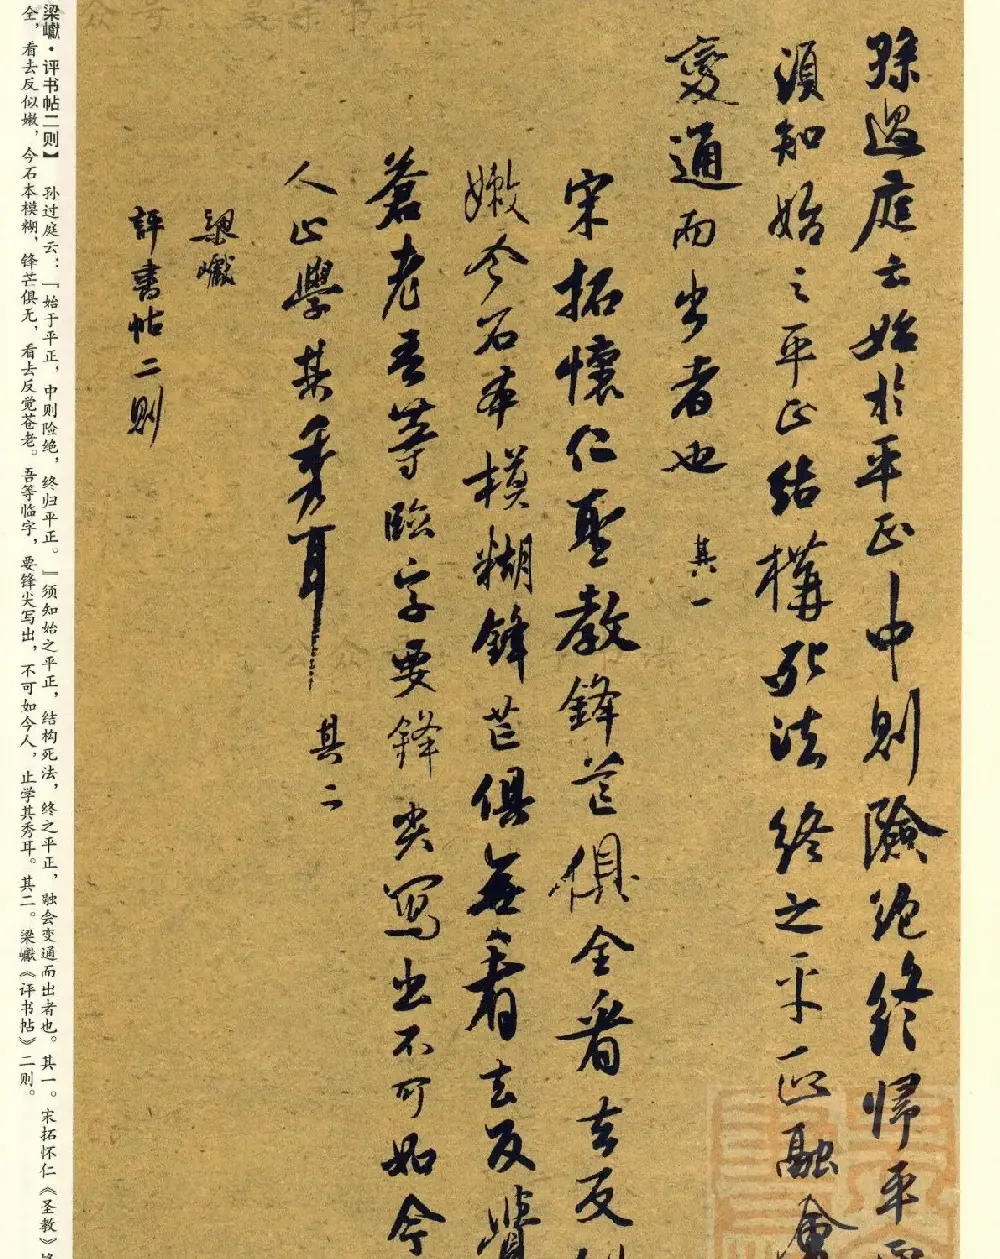 孫過庭云始於平正中則險絕終歸平
須知始之平正結構死法終之平正融會
變通而出者也
其一
宋拓懷仁聖教鋒芒俱全看去反似
嫩今石本模糊鋒芒俱無看去反覺
蒼老吾等臨字要鋒尖寫出不可如今
人止學其秀耳
其二
梁巘
評書帖二則
梁巘·评书帖二则】 孙过庭云：「始于平正，中则险绝，终归平正。』须知始之平正，结构死法，终之平正，融会变通而出者也。其一。宋拓怀仁《圣教》锋
全，看去反似嫩，今石本模糊，锋芒俱无，看去反觉苍老。吾等临字，要锋尖写出，不可如今人，止学其秀耳。其二。梁巘《评书帖》二则。